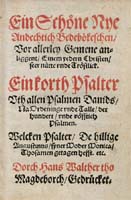 Ein Schöne Nye
Andechtich Bedeböckschen,
Vor allerley Gemene an-
liggent, Einem ydern Christen,
seer nütte vnde Tröstlick.
Ein kort Psalter
Vth allen Psalmen Dauids,
Na Ordeninge vnde Talle, der
hundert, vnde vöfftich
Psalmen.
Welcken Psalter, De hillige
Augustinus, syner Moder Monica,
Thosamen getagen hefft. etc.
Dorch Hans Walther tho
Magdeborch, Gedrücket.